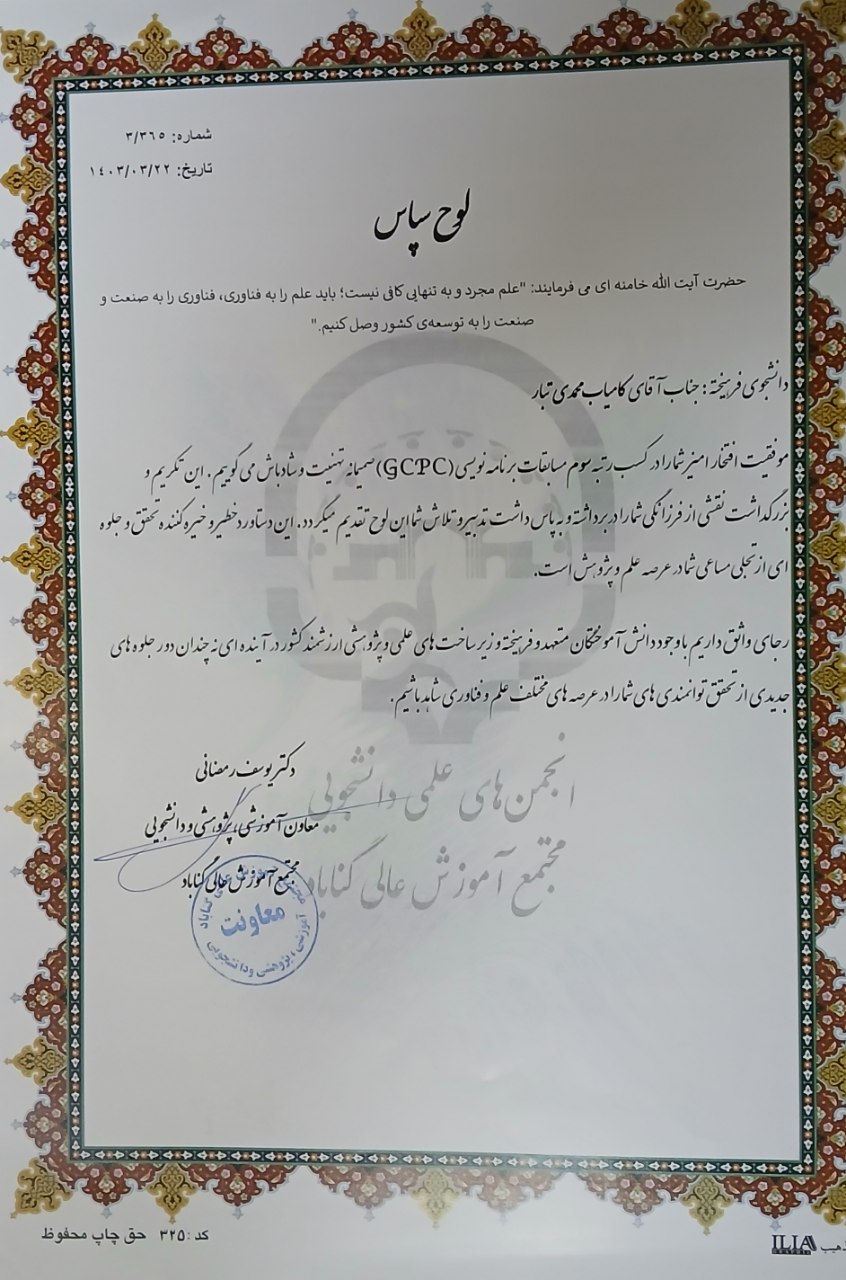 شماره: ۳/۳۶۵
تاریخ: ۱۴۰۳/۰۳/۲۲
لوح سپاس
حضرت آیت الله خامنه ای می فرمایند: "علم مجرد و به تنهایی کافی نیست؛ باید علم را به فناوری، فناوری را به صنعت و
صنعت را به توسعه‌ی کشور وصل کنیم."
دانشجوی فرهیخته: جناب آقای کامیاب محمدی تبار
موفقیت افتخار آمیز شما را در کسب رتبه سوم مسابقات برنامه نویسی (GCPC) صمیمانه تهنیت و شادباش می گوییم. این تکریم و
بزرگداشت نقشی از فرزانگی شما را در برداشته و به پاس داشت تدبیر و تلاش شما این لوح تقدیم میگردد. این دستاورد خطیر و خیره کننده تحقق و جلوه
ای از تجلی مساعی شما در عرصه علم و پژوهش است.
رجای واثق داریم با وجود دانش آموختگان متعهد و فرهیخته و زیر ساخت های علمی و پژوهشی ارزشمند کشور در آینده ای نه چندان دور جلوه های
جدیدی از تحقق توانمندی های شما را در عرصه های مختلف علم و فناوری شاهد باشیم.
دکتر یوسف رمضانی
معاون آموزشی، پژوهشی و دانشجویی
مجتمع آموزش عالی گناباد
انجمن های علمی دانشجویی
مجتمع آموزش عالی گناباد
معاونت
آموزشی، پژوهشی و دانشجویی
کد: ۳۲۵ حق چاپ محفوظ
ILIA